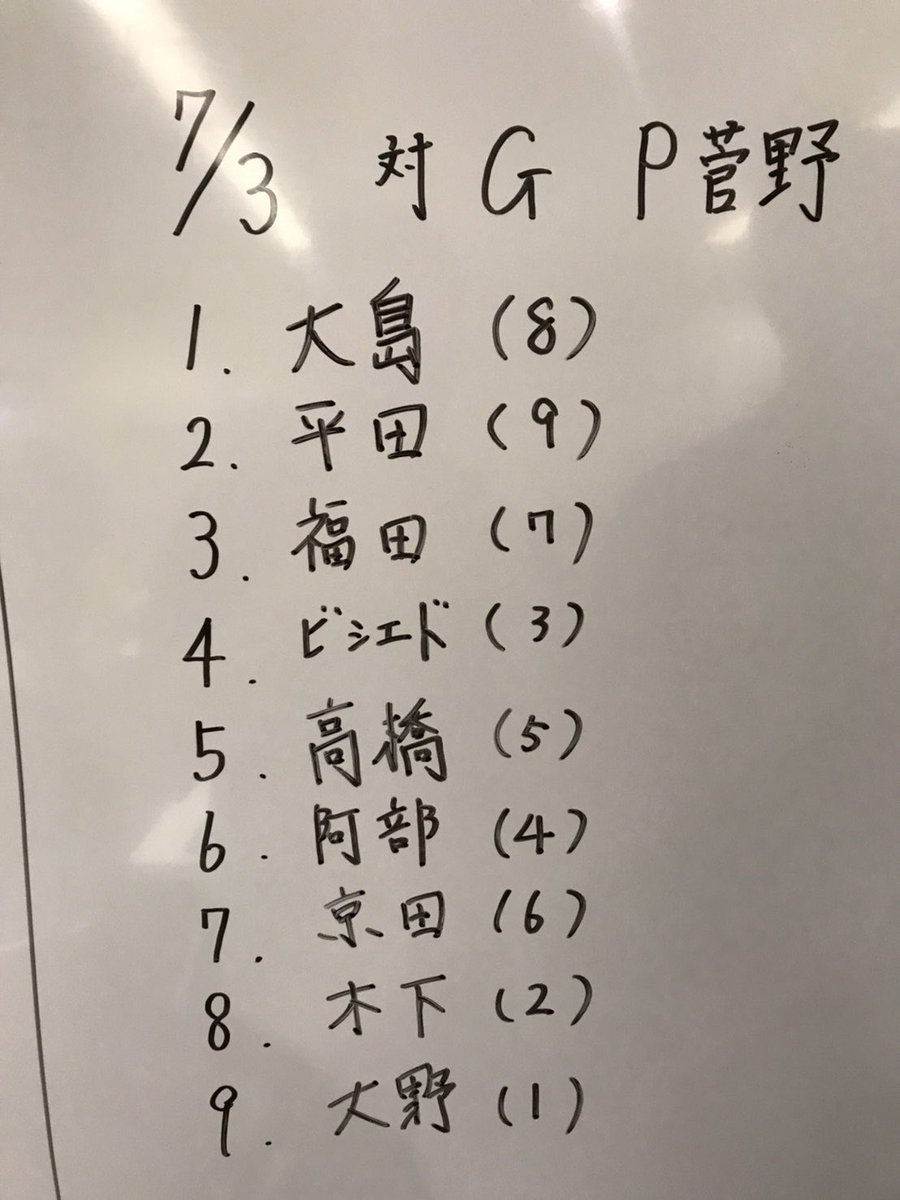 7/3 対 G P菅野
1. 大島 (8)
2. 平田 (9)
3. 福田 (7)
4. ビシエド (3)
5. 高橋 (5)
6. 阿部 (4)
7. 京田 (6)
8. 木下 (2)
9. 大野 (1)